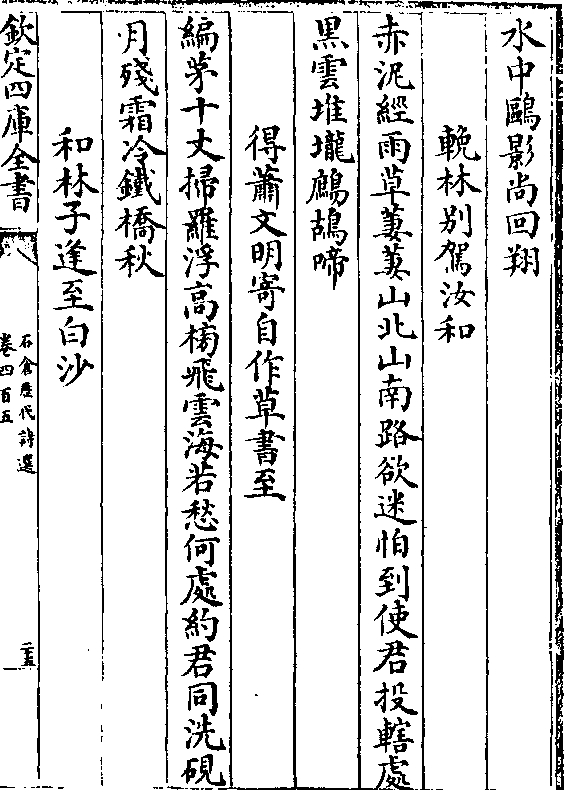 水中鷗影尚回翔
輓林别駕汝和
赤泥經雨草萋萋山北山南路欲迷怕到使君投轄處
黑雲堆壠鷓鴣啼
得蕭文明寄自作草書至
編茅十丈掃羅浮高榜飛雲海若愁何處約君同洗硯
月殘霜冷鐵橋秋
和林子逢至白沙
欽定四庫全書
石倉歷代詩選
卷四百五
二十五